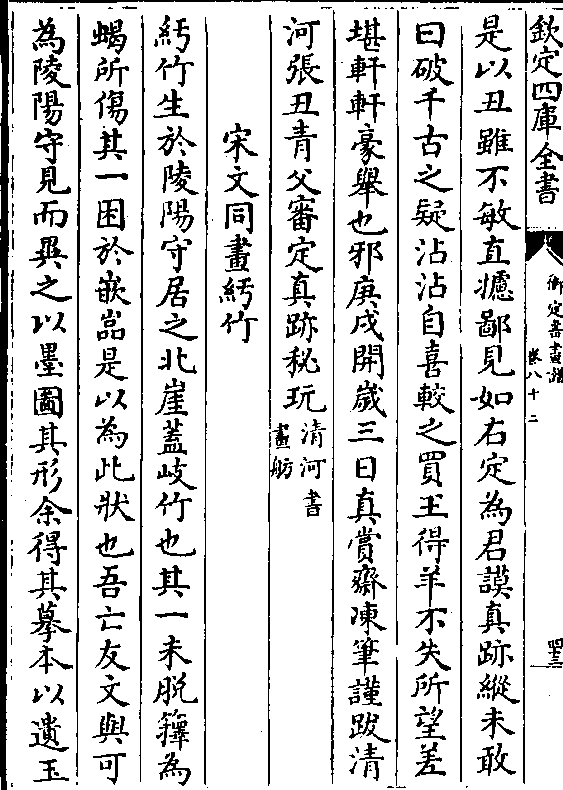 欽定四庫全書
御定書畫譜
卷八十二
四十三
是以丑雖不敏直攄鄙見如右定為君謨真跡縱未敢
曰破千古之疑沾沾自喜較之買王得羊不失所望差
堪軒軒豪舉也邪庚戌開歲三日真賞齋凍筆謹跋清
河張丑青父審定真跡秘玩清河書畫舫
宋文同畫紆竹
紆竹生於陵陽守居之北崖蓋岐竹也其一未脫籜為
蝎所傷其一困於嵌嵓是以為此狀也吾亡友文與可
為陵陽守見而異之以墨圖其形余得其摹本以遺玉